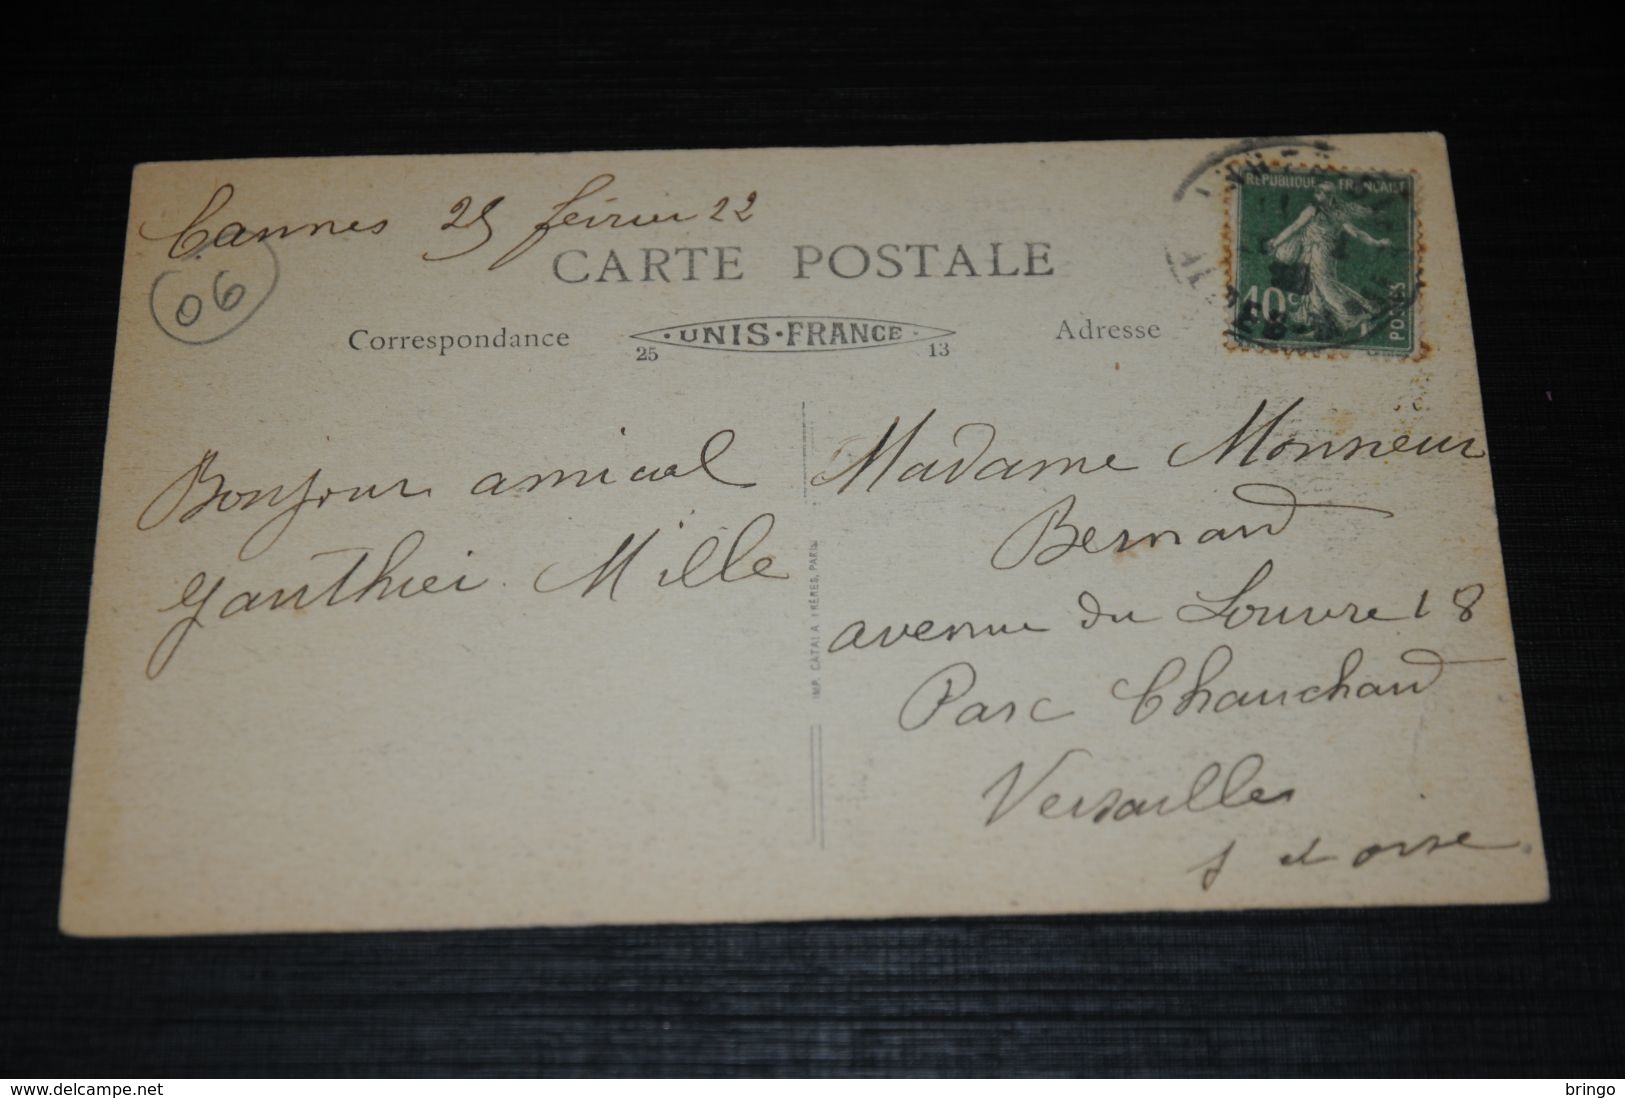 Cannes 25 février 22
06
CARTE POSTALE
Correspondance
UNIS-FRANCE
25 13
Adresse
REPUBLIQUE FRANÇAISE
10c
POSTES
Bonjour amical
Gauthier Mille
IMP. CATALA FRÈRES, PARIS
Madame Monneur
Bernard
avenue du Louvre 18
Parc Chauchard
Versailles
S et oise
www.delcampe.net
bringo